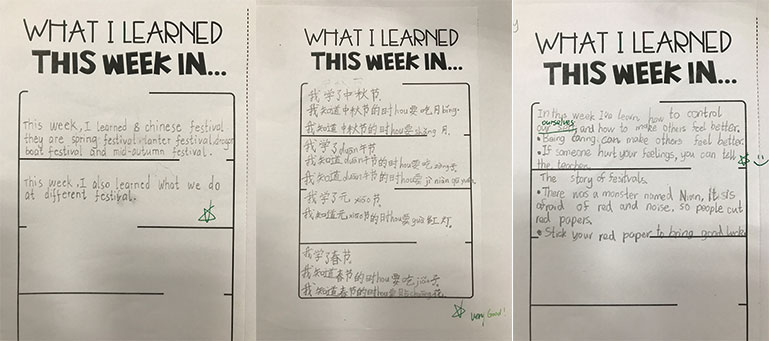 WHAT I LEARNED
THIS WEEK IN...
This week, I learned 8 chinese festival
they are spring festival, lanter festival, dragon
boat festival and mid-autumn festival.
This week, I also learned what we do
at different festival.
WHAT I LEARNED
THIS WEEK IN...
我学了中秋节.
我知道中秋节的时hou要吃月bǐng.
我知道中秋节的时hou要shǎng月.
我学了duān午节
我知道duān午节的时hou要吃zòng子.
我知道duān午节的时hou要jì niàn qū yuán.
我学了元xiāo节.
我知道元xiāo节的时hou要guà红灯.
我学了春节.
我知道春节的时hou要吃jiǎo子.
我知道春节的时hou要chuāng花.
Very Good!
WHAT I LEARNED
THIS WEEK IN...
In this week I've learn, how to control
ourselves
our self, and how to make others feel better.
• Being caring can make others feel better.
• If someone hurt your feelings, you can tell
the teacher.
The story of festivals.
• There was a monster named Nian, It sis
afraid of red and noise. so people cut
red papers.
• Stick your red paper to bring good luck